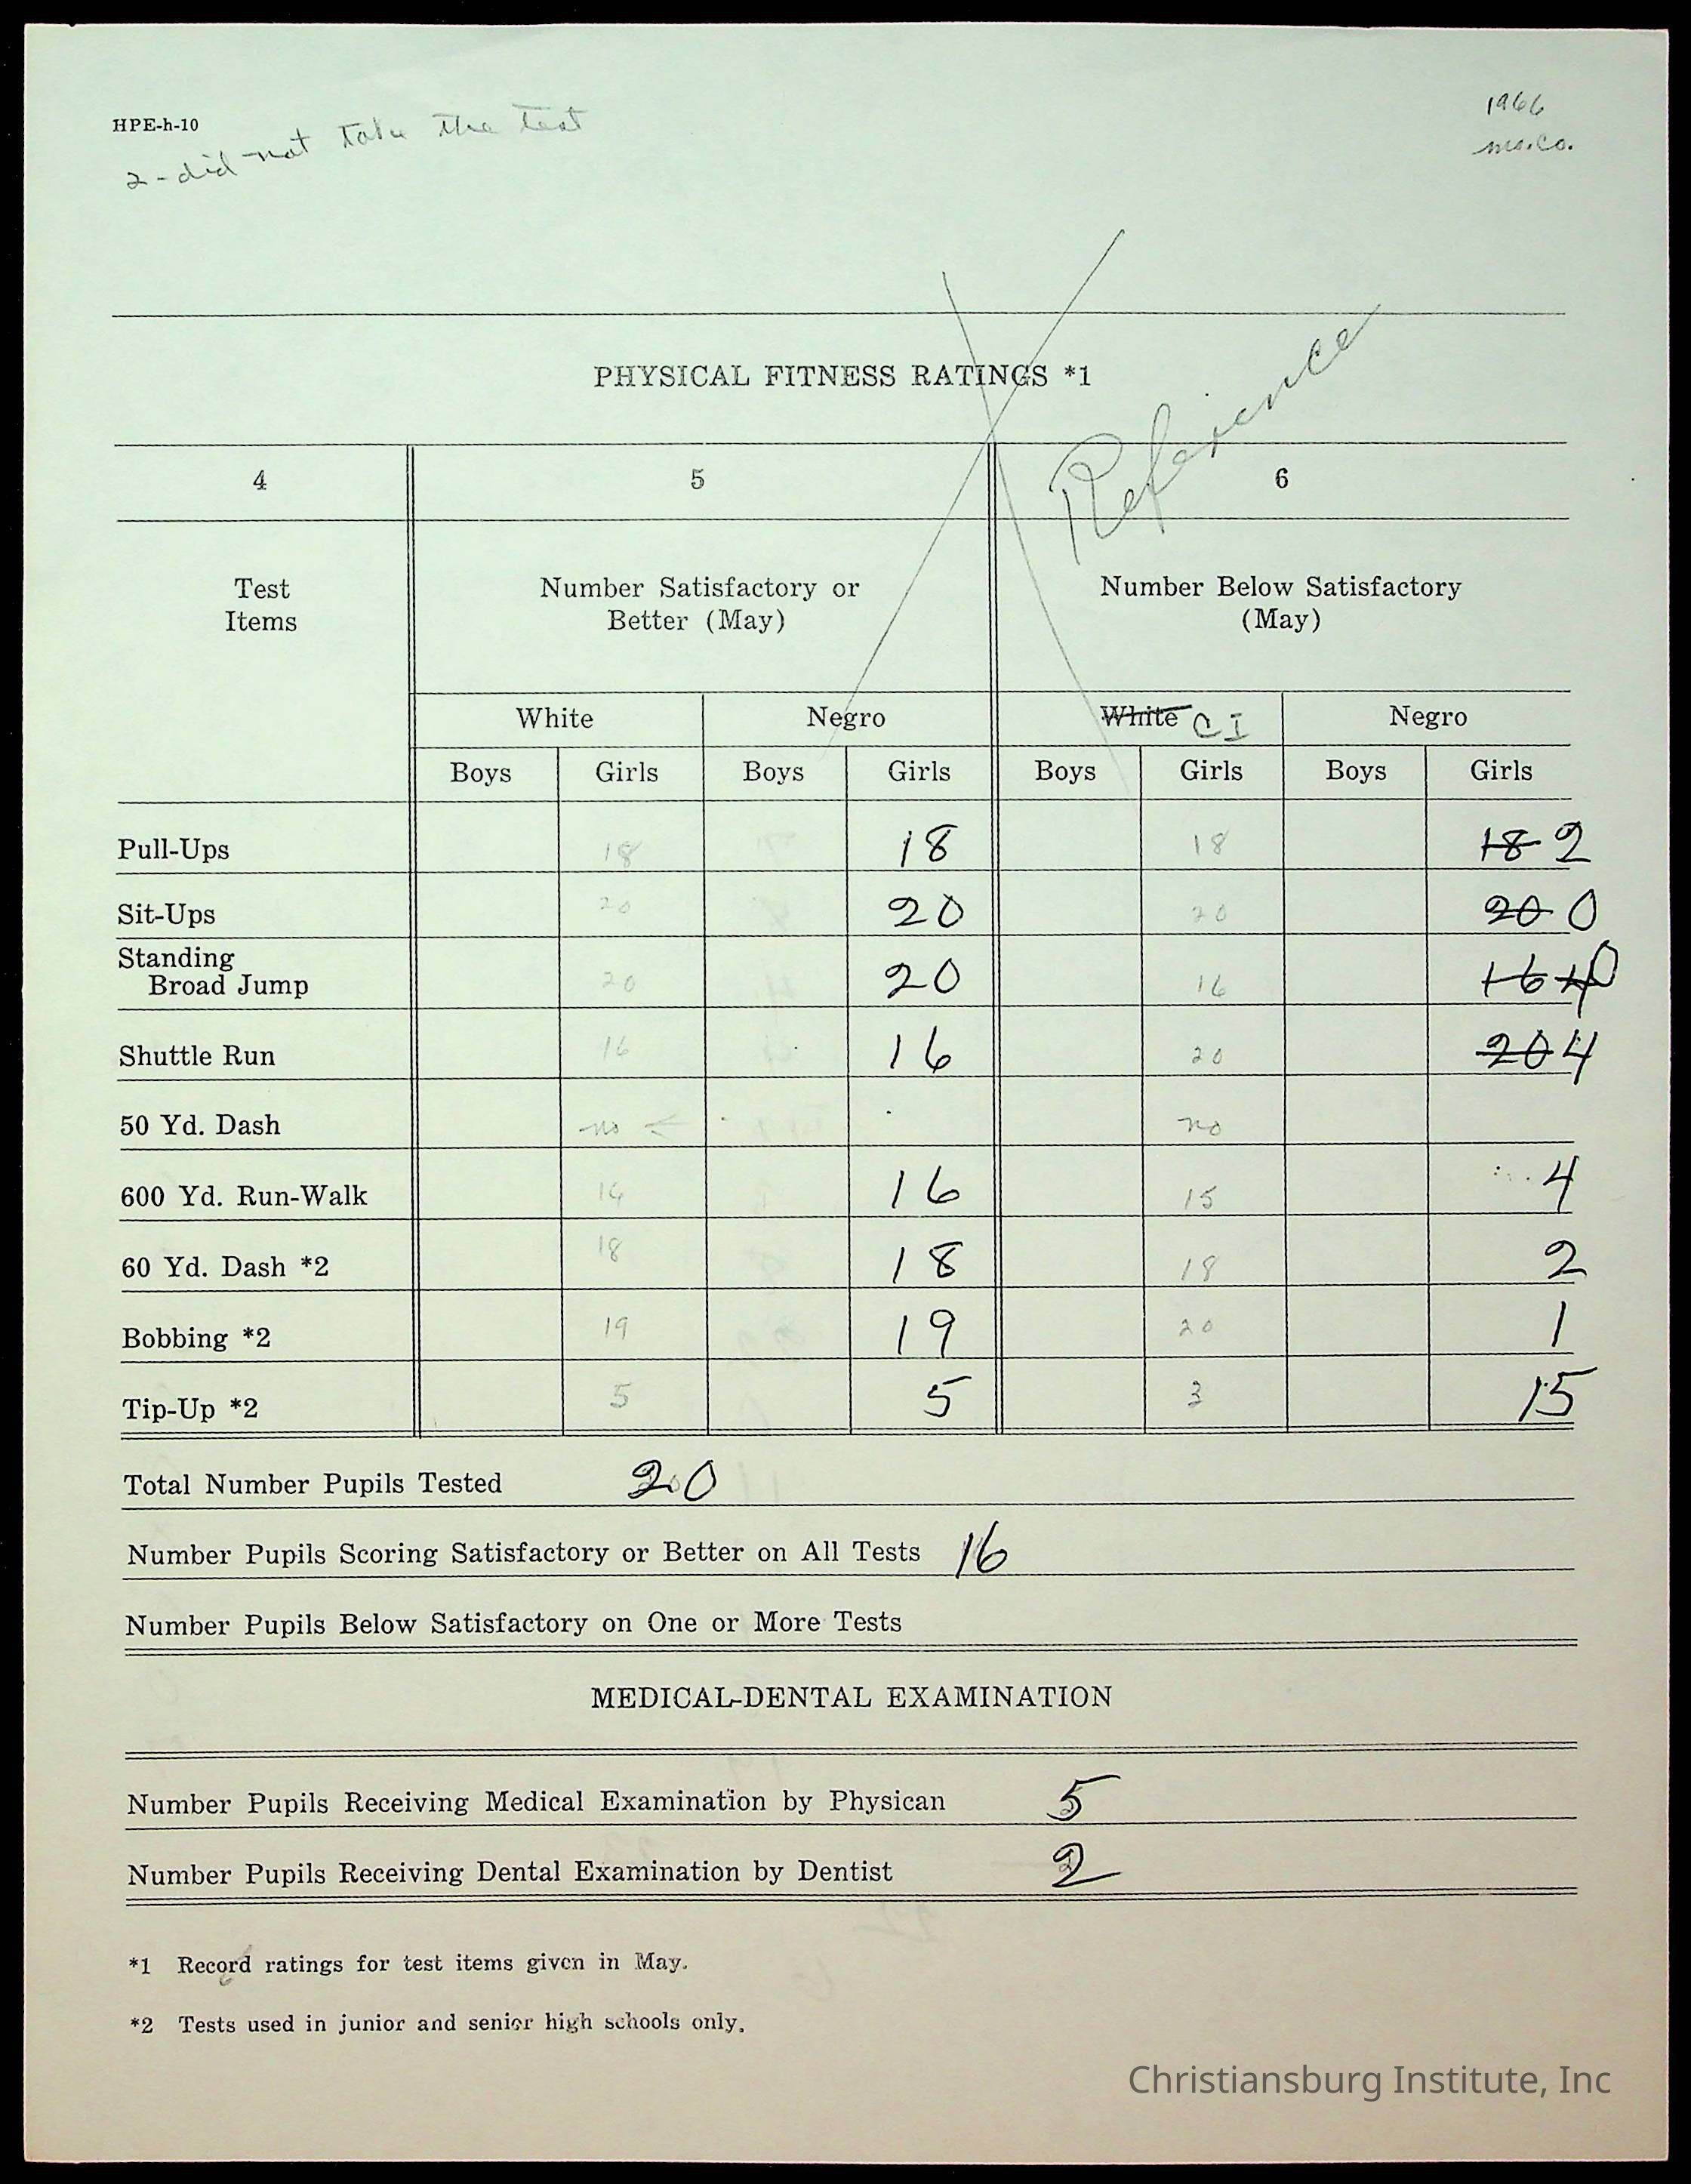 HPE-h-10
2-did not take the test
1966
ms.co.
PHYSICAL FITNESS RATINGS *1
Reference
4 5 6
Test Items
Number Satisfactory or Better (May)
Number Below Satisfactory (May)
White Negro White CI Negro
Boys Girls Boys Girls Boys Girls Boys Girls
Pull-Ups 18 18 18 18 2
Sit-Ups 20 20 20 20 0
Standing
Broad Jump 20 20 16 16 4 0
Shuttle Run 16 16 20 20 4
50 Yd. Dash no no
600 Yd. Run-Walk 16 16 15 4
60 Yd. Dash *2 18 18 18 2
Bobbing *2 19 19 20 1
Tip-Up *2 5 5 3 15
Total Number Pupils Tested 20
Number Pupils Scoring Satisfactory or Better on All Tests 16
Number Pupils Below Satisfactory on One or More Tests
MEDICAL-DENTAL EXAMINATION
Number Pupils Receiving Medical Examination by Physican 5
Number Pupils Receiving Dental Examination by Dentist 2
*1 Record ratings for test items given in May.
*2 Tests used in junior and senior high schools only.
Christiansburg Institute, Inc